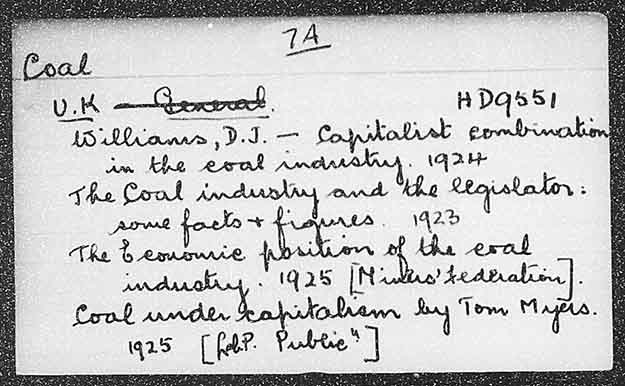 7A
Coal
U.K — General.
HD9551
Williams, D.J. — Capitalist combination
in the coal industry. 1924
The Coal industry and the legislator:
some facts + figures. 1923
The Economic position of the coal
industry. 1925 [Miners' Federation].
Coal under capitalism by Tom Myers.
1925 [Lab. P. Public"]